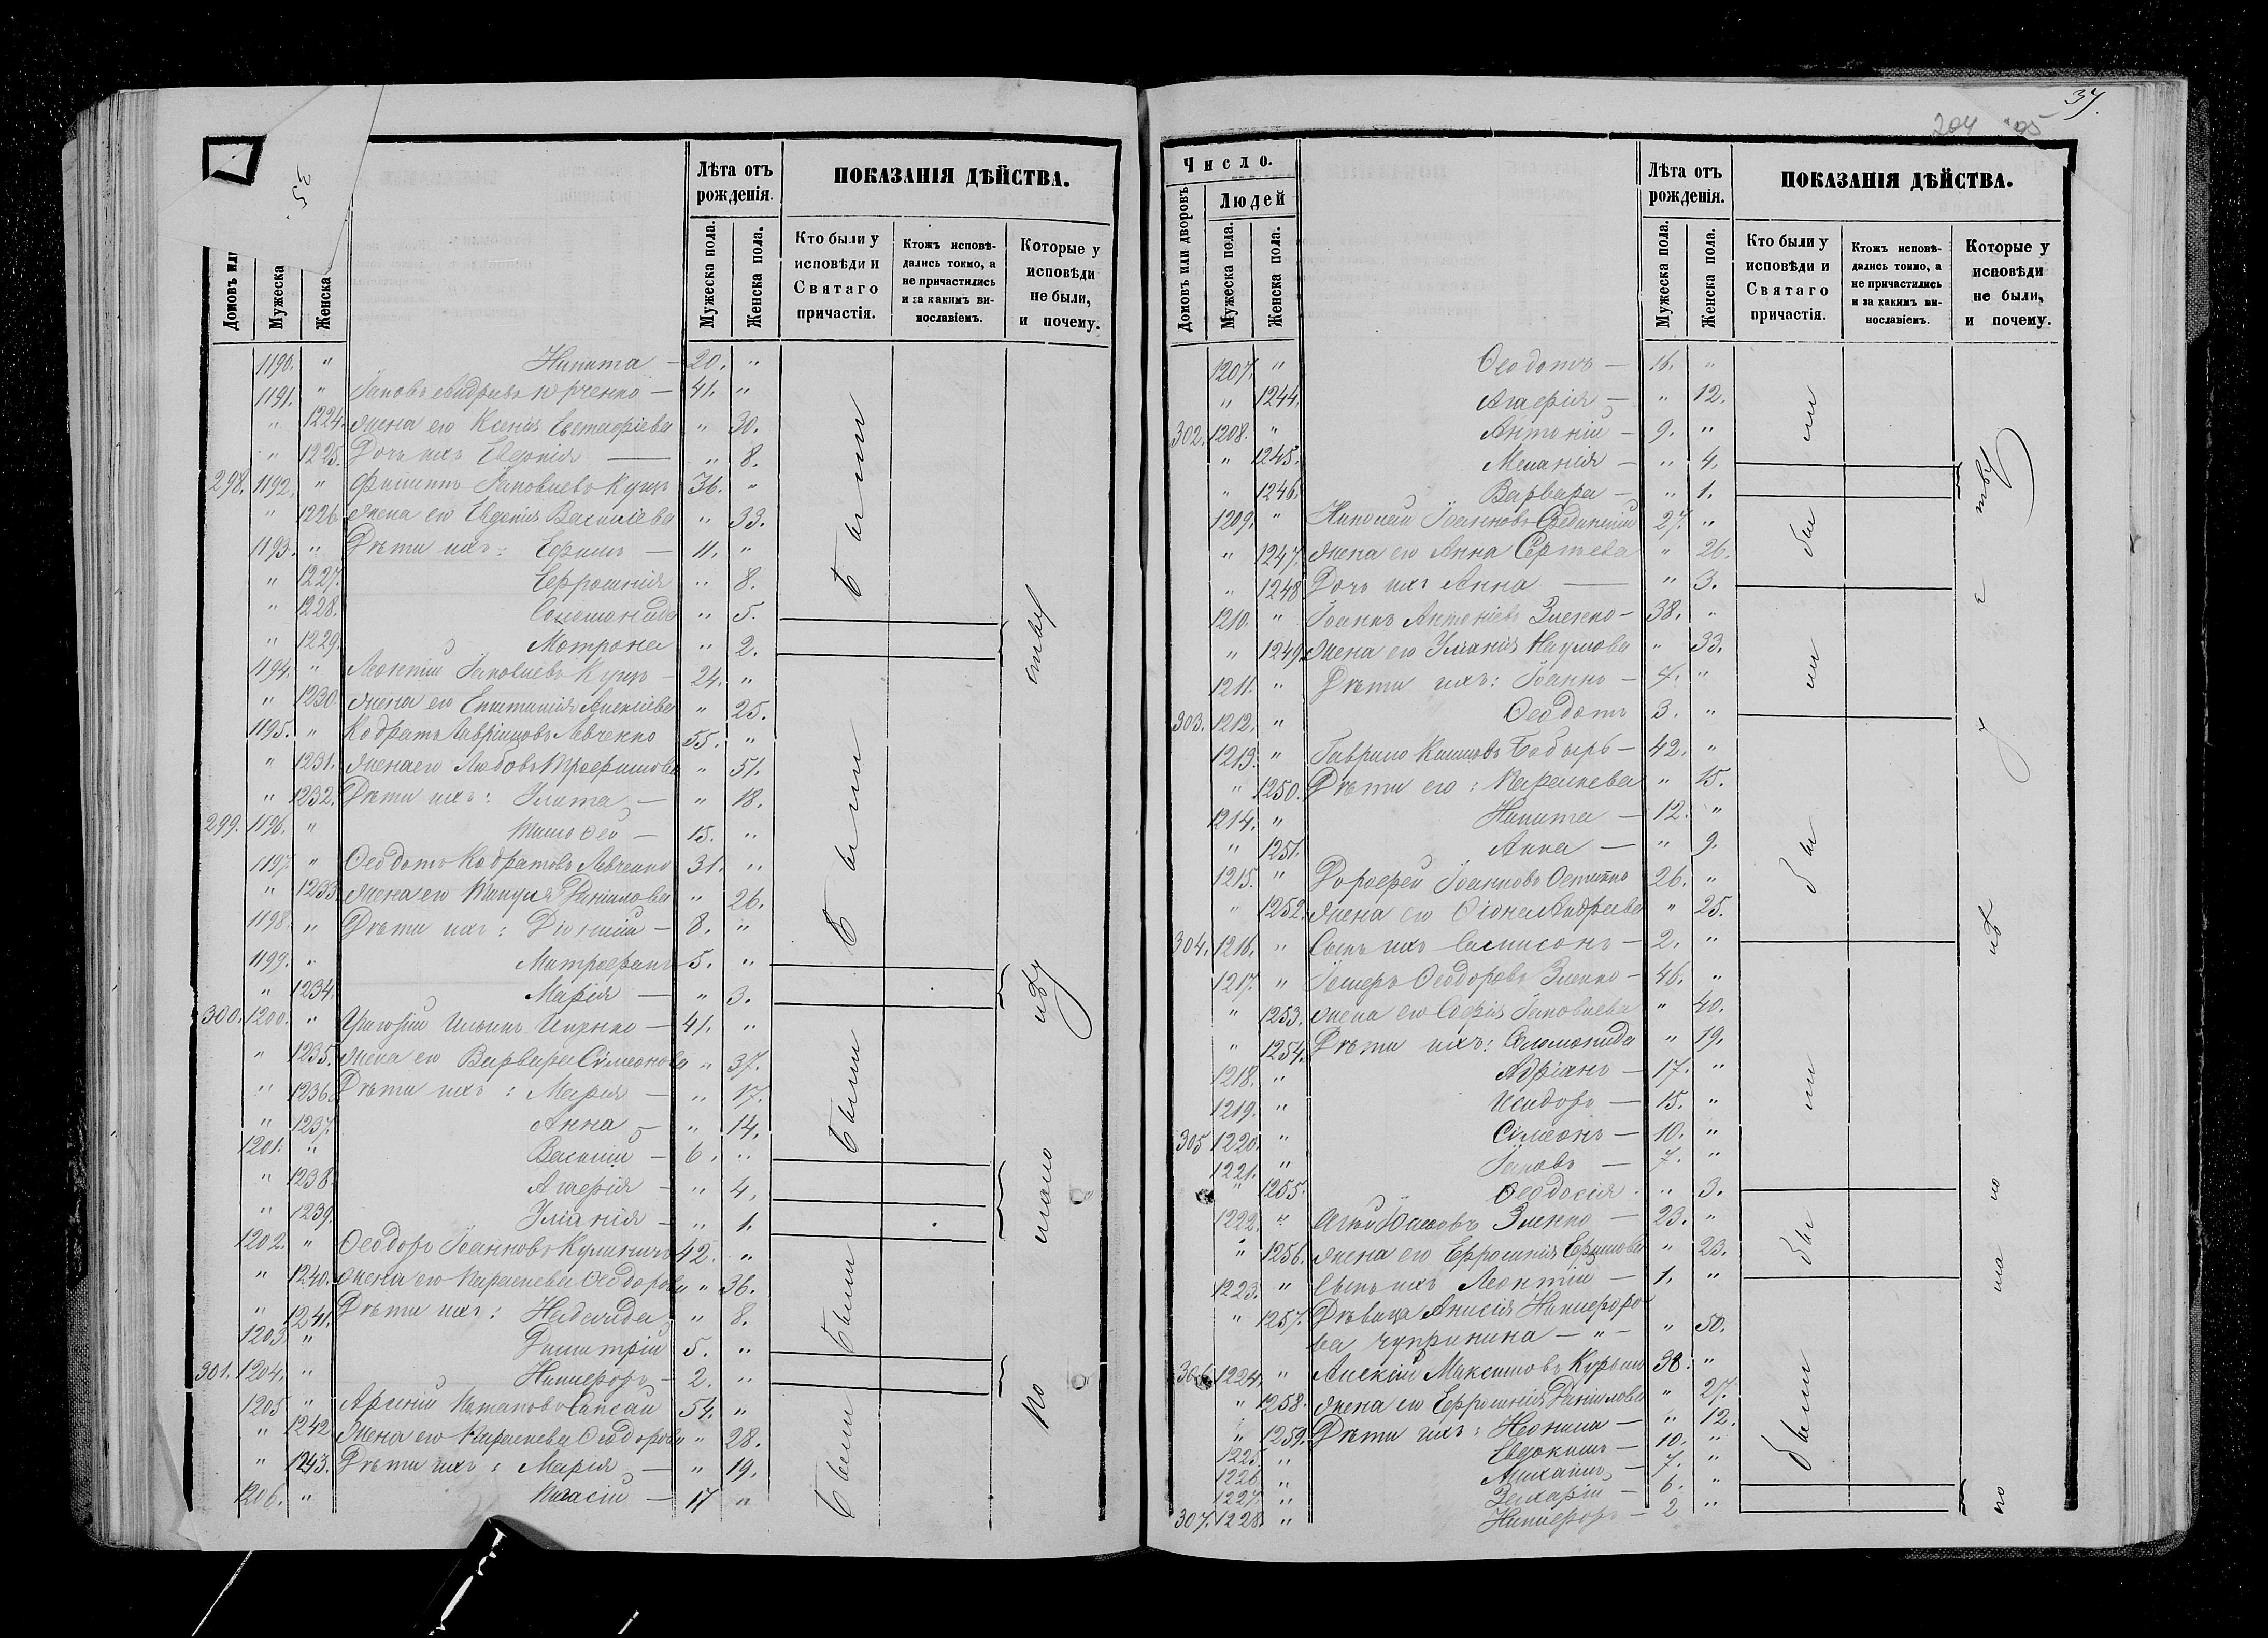 35.
Лѣта отъ рожденія.
ПОКАЗАНІЯ ДѢЙСТВА.
Мужеска
Женска
Мужеска пола.
Женска пола.
Кто были у исповѣди и Святаго причастія.
Ктожъ исповѣдались токмо, а не причастились и за какимъ винославіемъ.
Которые у исповѣди не были, и почему.
1190. " Никита — 20. "
1191. " Іаковъ Андреевъ Юрченко — 41. "
" 1224. Жена его Ксенія Евстафіева " 30.
" 1225. Дочь ихъ Евфимія — " 8.
298. 1192. " Филиппъ Іаковлевъ Куцъ 36. "
" 1226. Жена его Евгенія Василіева " 33.
1193. " Дѣти ихъ: Ефимъ — 11. "
" 1227. Ефросинія " 8.
" 1228. Соломонида " 5.
" 1229. Мотрона " 2.
1194. " Леонтій Іаковлевъ Куцъ — 24. "
" 1230. Жена его Епистимія Алексіева " 25.
1195. " Кодратъ Левченко 55. "
" 1231. Жена его Любовь Трофимова " 51.
" 1232. Дѣти ихъ: Улита — " 18.
299. 1196. " Тимоѳей — 15. "
1197. " Ѳеодотъ Кодратовъ Левченко 31. "
" 1233. Жена его Даніилова " 26.
1198. " Дѣти ихъ: Діонисій — 8. "
1199. " Митрофанъ 5. "
" 1234. Марія — " 3.
300. 1200. " Григорій Ильинъ — 41. "
" 1235. Жена его Варвара Сѵмеонова " 37.
" 1236. Дѣти ихъ: Марія — " 17.
" 1237. Анна — " 14.
1201. " Василій — 6. "
" 1238. Агафія — " 4.
" 1239. Уліанія — " 1.
1202. " Ѳеодоръ Іоанновъ 42. "
" 1240. Жена его Параскева Ѳеодорова " 36.
" 1241. Дѣти ихъ: Надежда " 8.
1203. " Димитрій 5. "
301. 1204. " Никифоръ — 2. "
1205 " Арсеній Сапсай 54. "
" 1242 Жена его Параскева Ѳеодорова " 28.
" 1243. Дѣти ихъ: Марія — " 19.
1206. " Власій — 17 "
Были
Были
Были
Были
Были
37.
204
Число.
Домовъ или дворовъ
Людей
Мужеска пола.
Женска пола.
Лѣта отъ рожденія.
Мужеска пола.
Женска пола.
ПОКАЗАНІЯ ДѢЙСТВА.
Кто были у исповѣди и Святаго причастія.
Ктожъ исповѣдались токмо, а не причастились и за какимъ винославіемъ.
Которые у исповѣди не были, и почему.
1207. " Ѳеодотъ — 16. "
" 1244. Агафія — " 12.
302. 1208. " Антоній — 9. "
" 1245. Меланія — " 4.
" 1246. Варвара — " 1.
1209. " Николай Іоанновъ 27. "
" 1247. Жена его Анна Сергѣева " 26.
" 1248 Дочь ихъ Анна — " 3.
1210. " Іоаннъ Антоніевъ Зленко — 38. "
" 1249. Жена его Уліанія Наумова " 33.
1211. " Дѣти ихъ: Іоаннъ — 7. "
303. 1212. " Ѳеодотъ 3. "
1213. " Гавріилъ Бабырь — 42. "
" 1250. Дѣти его: Параскева " 15.
1214. " Никита — 12. "
" 1251. Анна — " 9.
1215. " Дороѳей Іоанновъ 26. "
" 1252. Жена его Андреева " 25.
304. 1216. " Сынъ ихъ Сампсонъ — 2. "
1217. " Ѳеодоровъ Зленко — 46. "
" 1253. Жена его Софія Іаковлева " 40.
" 1254. Дѣти ихъ: Соломонида " 19.
1218. " Адріанъ — 17. "
1219. " Исидоръ — 15. "
305 1220. " Сѵмеонъ — 10. "
1221. " Іаковъ — 7. "
" 1255. Ѳеодосія " 3.
1222. " Зленко — 23. "
" 1256. Жена его Ефросинія Ефимова " 23.
1223. " Сынъ ихъ Леонтій — 1. "
" 1257. Дѣвица Анисія Никифоро-
ва Чупринина — " — " 50.
306 1224. " Алексій Максимовъ 38. "
" 1258. Жена его Ефросинія Даніилова " 27.
" 1259. Дѣти ихъ: Неонила — " 12.
1225. " Евдокимъ — 10. "
1226. " Михаилъ — 7. "
1227. " Захарій — 6. "
307. 1228. " Никифоръ — 2 "
были